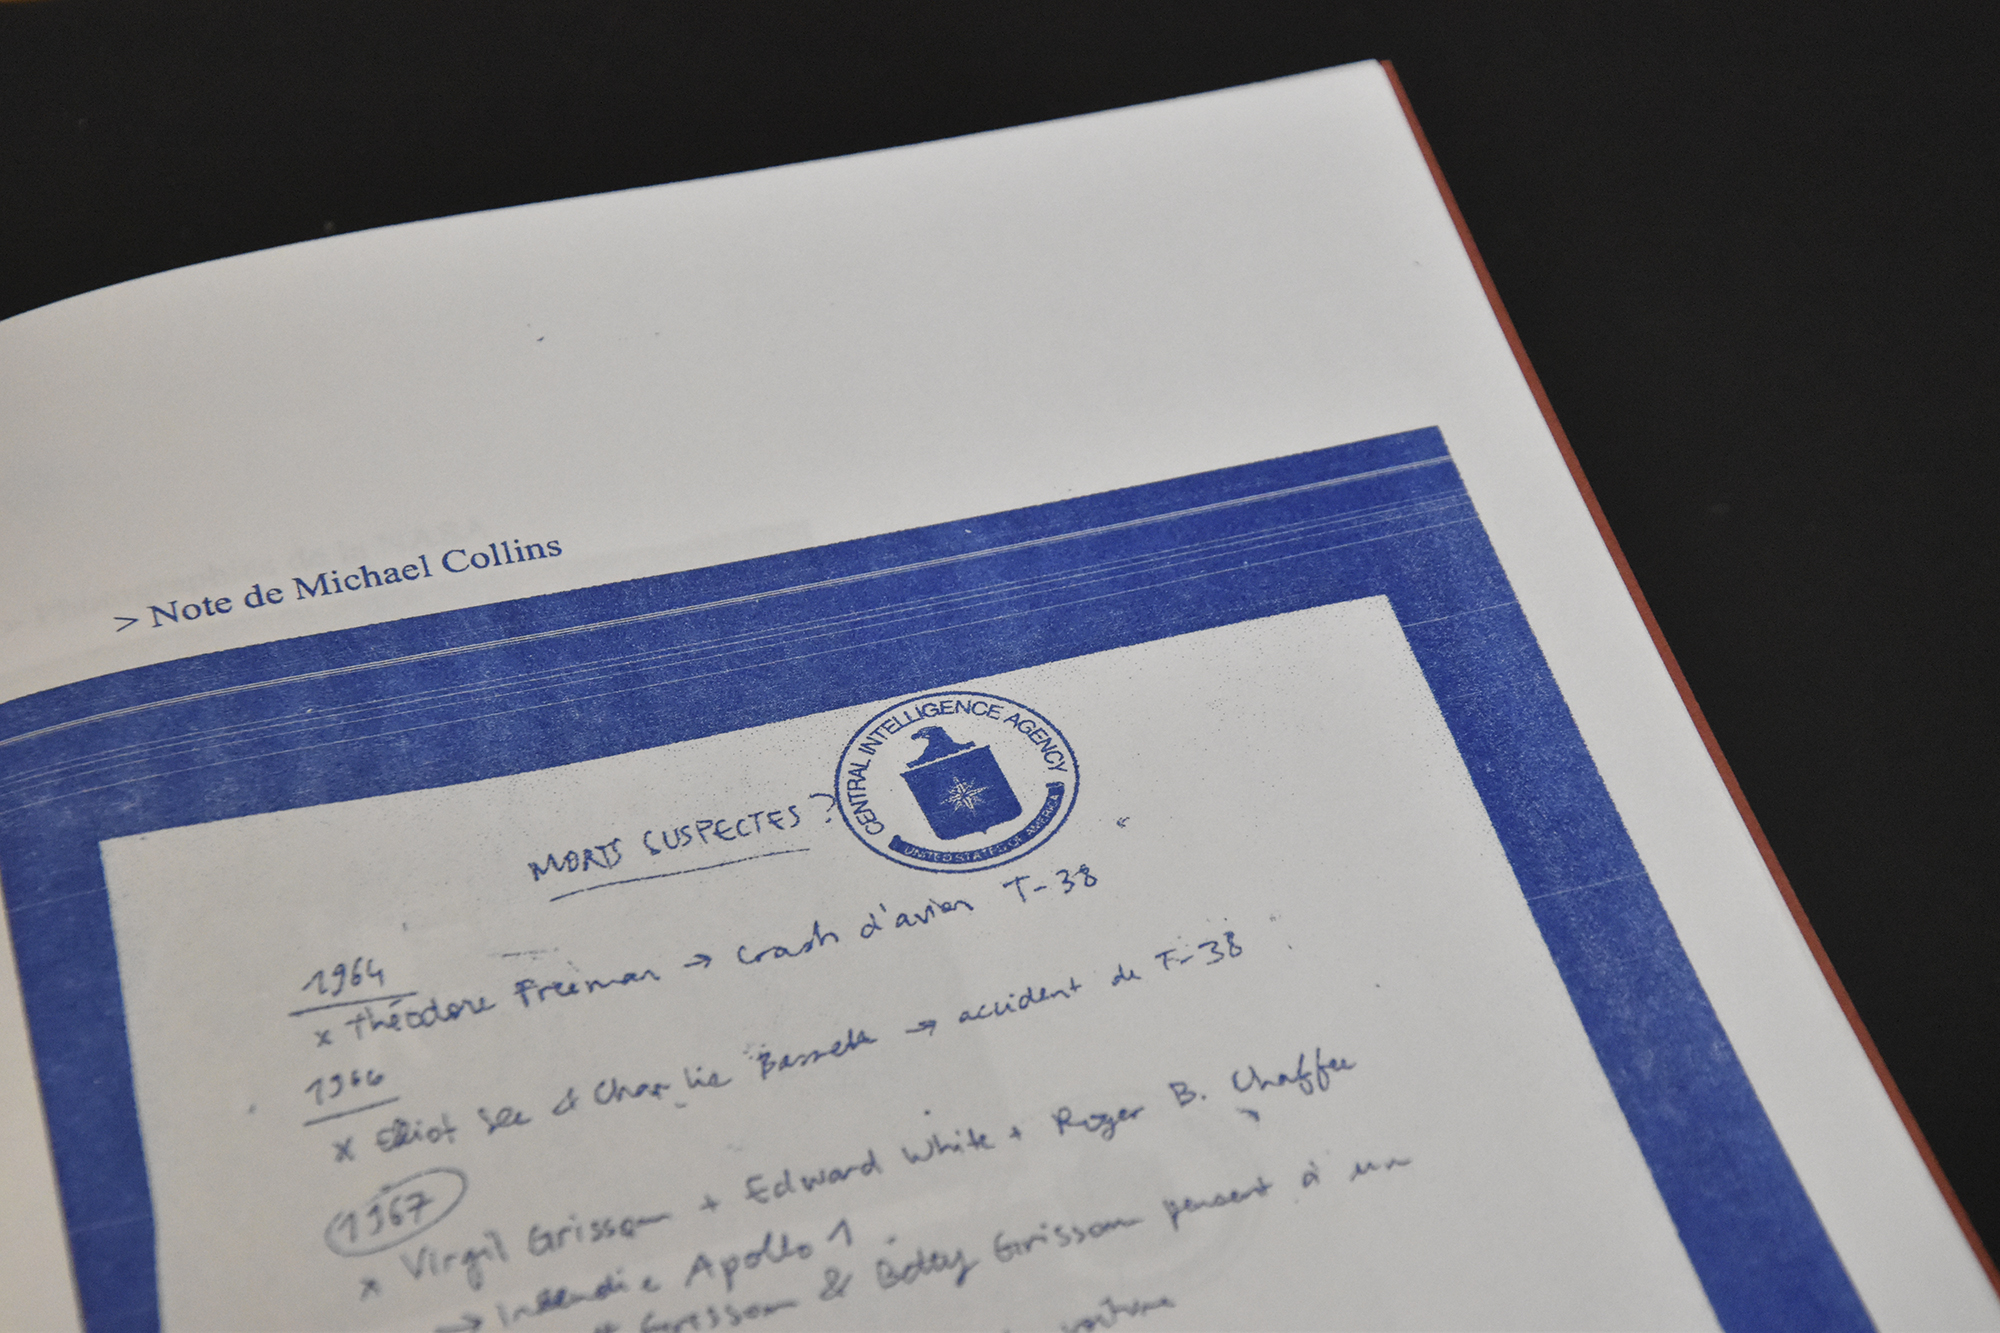 > Note de Michael Collins
CENTRAL INTELLIGENCE AGENCY
UNITED STATES OF AMERICA
MORTS SUSPECTES ?
1964
x Théodore Freeman → crash d'avion T-38
1966
x Elliot See & Charlie Bassett → accident de T-38
1967
x Virgil Grissom + Edward White + Roger B. Chaffee
→ incendie Apollo 1
Grissom & Betty Grissom pensent à un
voiture